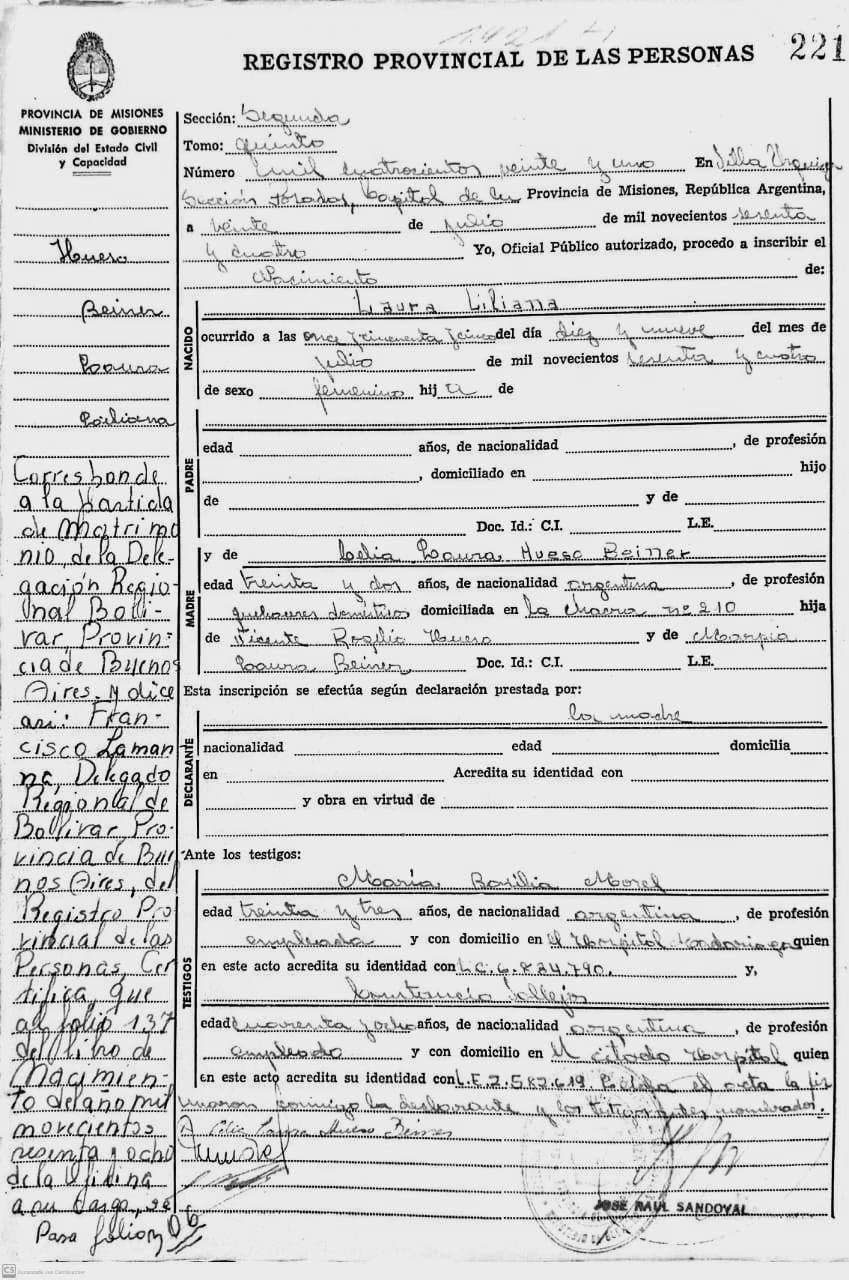 1421
REGISTRO PROVINCIAL DE LAS PERSONAS 221
PROVINCIA DE MISIONES
MINISTERIO DE GOBIERNO
División del Estado Civil
y Capacidad
Hueso
Beiner
Laura
Liliana
Corresponde
a la Partida
de Matrimo
nio, de la Dele-
gación Regio-
nal Bolí-
var Provin-
cia de Buenos
Aires, y dice
asi: Fran-
cisco Laman
na, Delegado
Regional de
Bolívar, Pro-
vincia de Bue
nos Aires, del
Registro Pro
vincial de las
Personas, Cer
tifica, que
al folio 137
del libro de
Nacimien-
to del año mil
novecientos
sesenta y ocho
de la Oficina
a su cargo, se
Pasa folio
Sección: Segunda
Tomo: quinto
Número mil cuatrocientos veinte y uno En Villa Urquiza
Sección Posadas, Capital de la Provincia de Misiones, República Argentina,
a veinte de julio de mil novecientos sesenta
y cuatro Yo, Oficial Público autorizado, procedo a inscribir el
Nacimiento de:
NACIDO
Laura Liliana
ocurrido a las once y cincuenta y cinco del día diez y nueve del mes de
julio de mil novecientos sesenta y cuatro
de sexo femenino hij a de
PADRE
edad años, de nacionalidad , de profesión
, domiciliado en hijo
de y de
Doc. Id.: C.I. L.E.
MADRE
y de Celia Laura Hueso Beiner
edad treinta y dos años, de nacionalidad argentina , de profesión
quehaceres domésticos domiciliada en la chacra nº 210 hija
de Vicente Rogelio Hueso y de María
Laura Beiner Doc. Id.: C.I. L.E.
Esta inscripción se efectúa según declaración prestada por:
DECLARANTE
la madre
nacionalidad edad domicilia
en Acredita su identidad con
y obra en virtud de
Ante los testigos:
TESTIGOS
María Basilia Morel
edad treinta y tres años, de nacionalidad argentina , de profesión
empleada y con domicilio en el Hospital Madariaga quien
en este acto acredita su identidad con L.C. 6.824.790. y,
Constancio Vallejos
edad cuarenta y ocho años, de nacionalidad argentina , de profesión
empleado y con domicilio en el citado Hospital quien
en este acto acredita su identidad con L.E. 7.587.619. Leída el acta la fir
maron conmigo la declarante y los testigos antes nombrados.
Celia Laura Hueso Beiner
JOSE RAUL SANDOVAL
CS